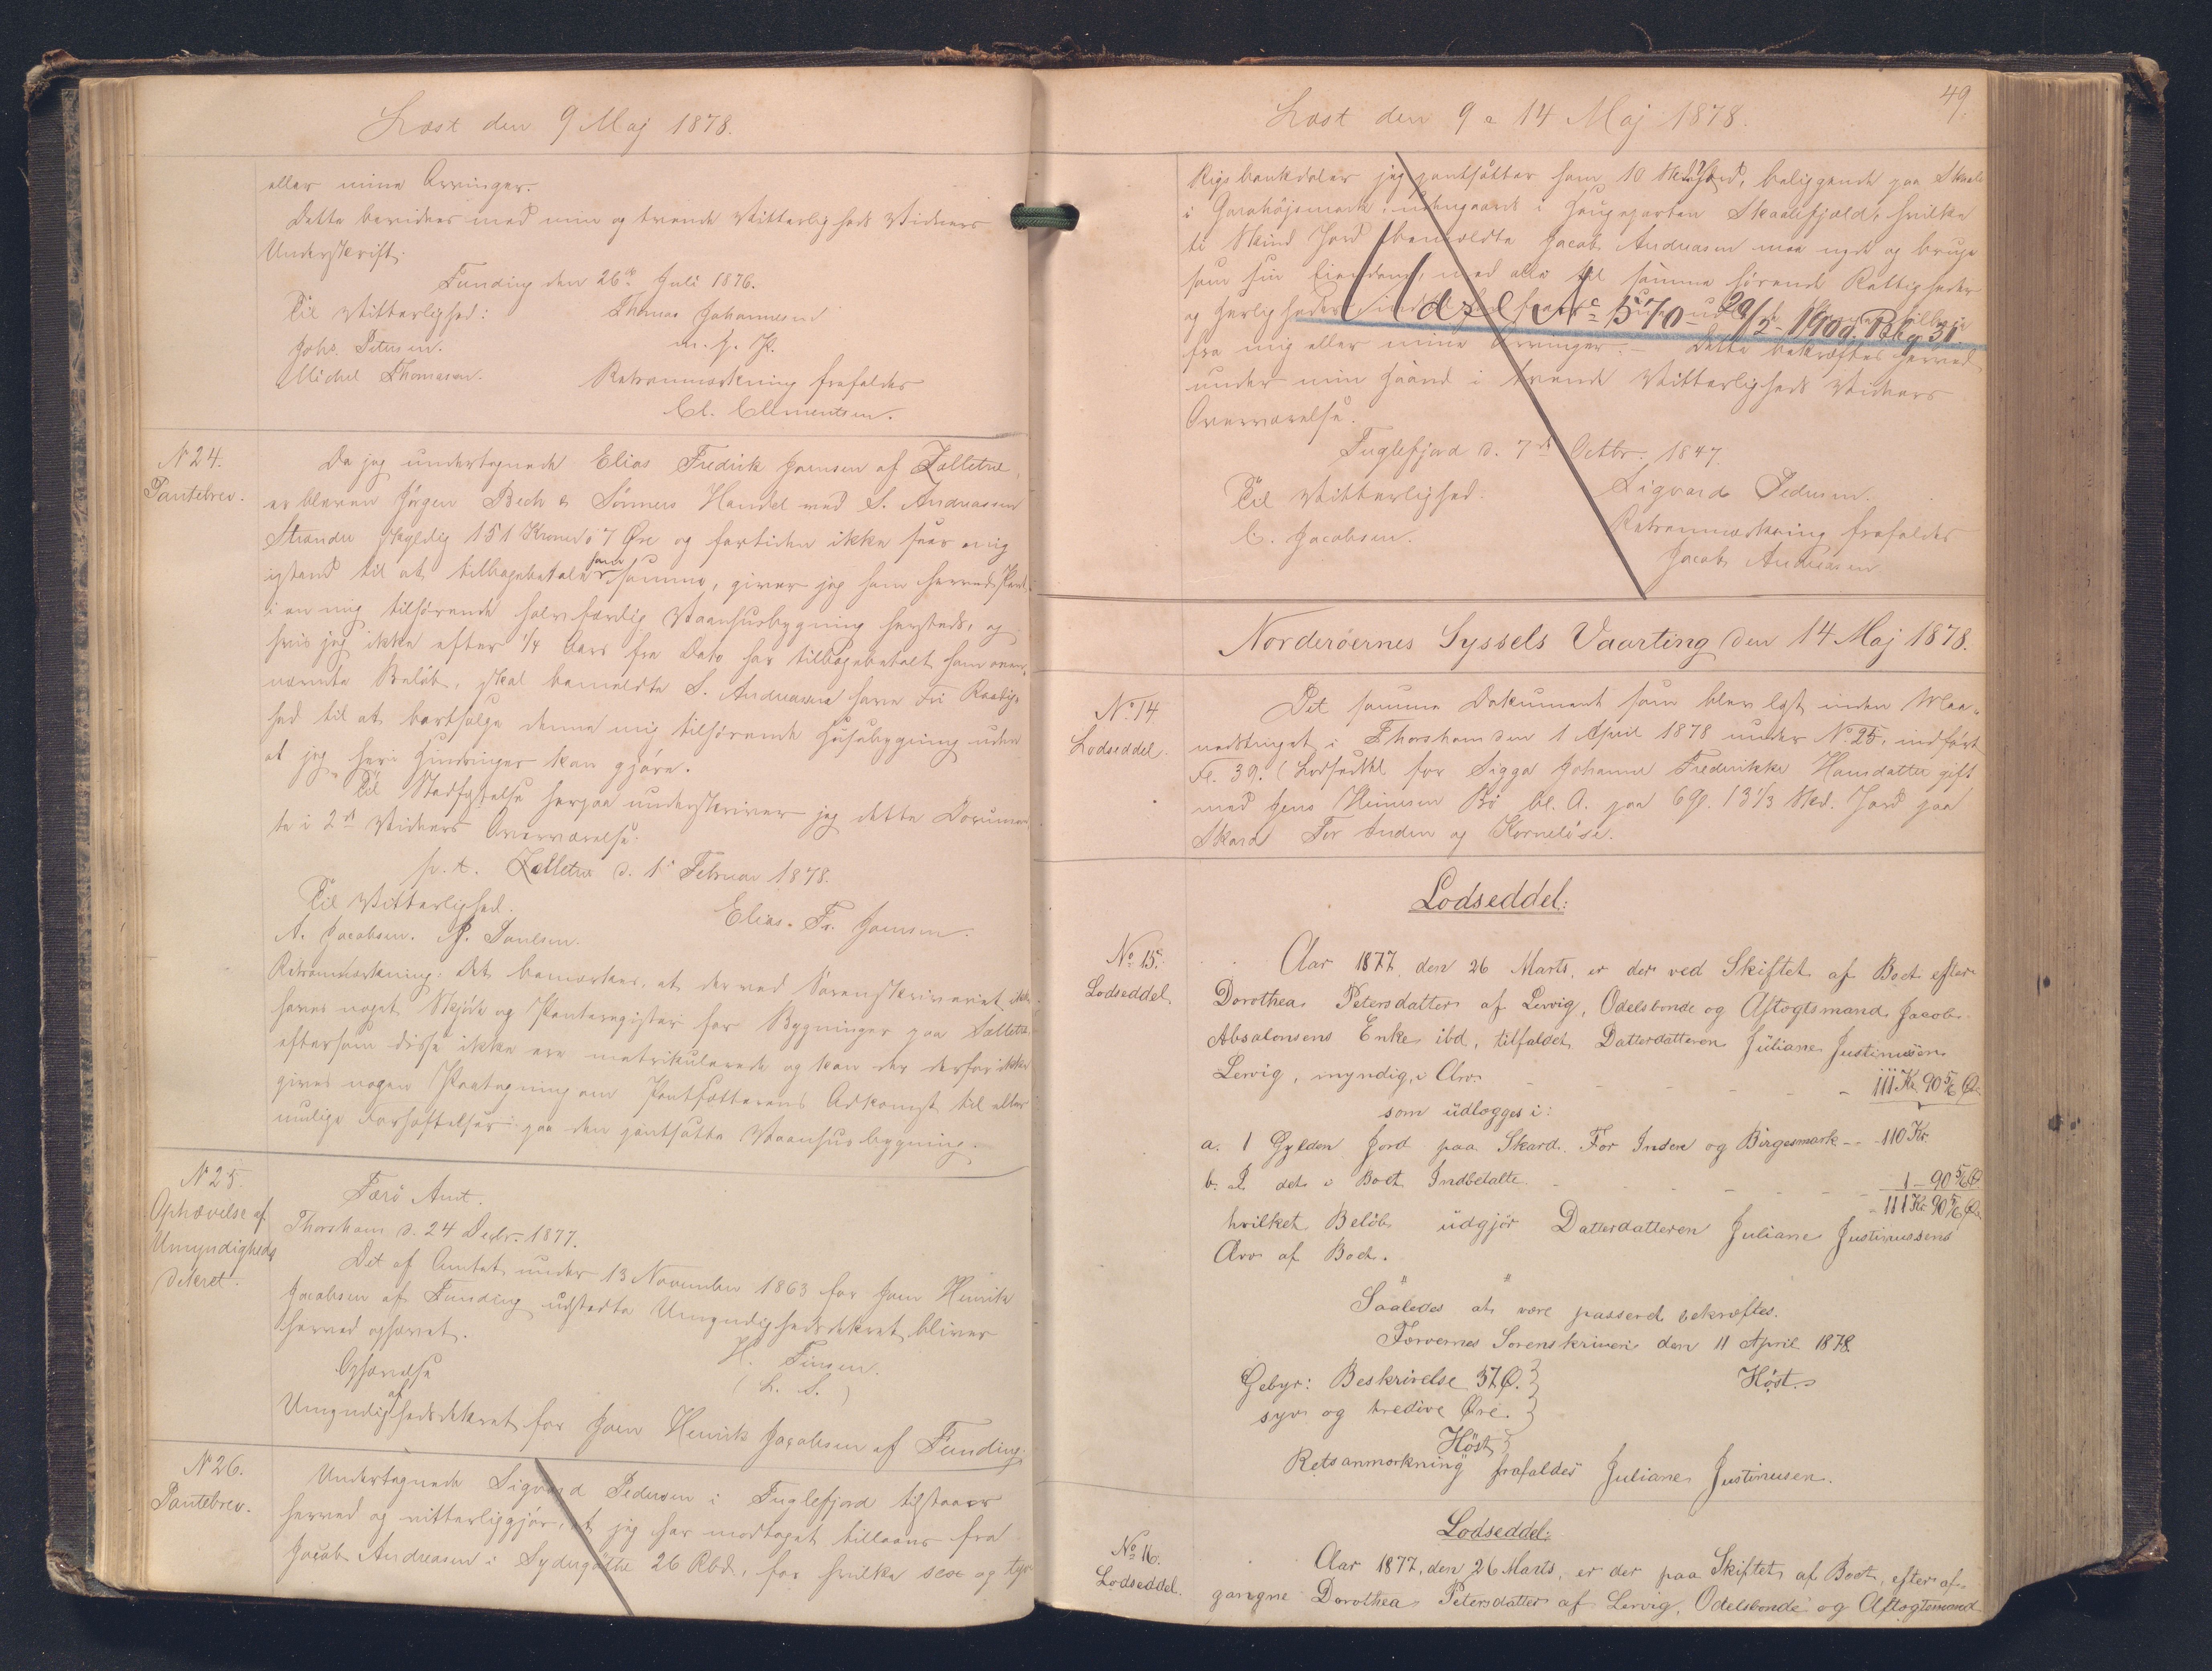 Læst den 9 Maj 1878.
eller mine Arvinger.
Dette bevidnes med min og tvende Vitterligheds Vidners
Underskrift.
Funding den 26de Juli 1876.
Til Vitterlighed: Thomas Johannesen
Johs. Petersen. m. f. P.
Michel Thomasen. Retsanmærkning frafaldes
Cl. Clementsen.
N 24.
Pantebrev.
Da jeg undertegnede Elias Fredrik Joensen af
er bleven Jørgen Bech & Sönners Handel ved S. Andreassen
Strandre skyldig 151 Kroner 7 Øre og fortiden ikke seer mig
istand til at tilbagebetale ham samme, giver jeg ham herved Pant
i en mig tilhørende halvfærdig Vaanhusbygning hersteds, og
hvis jeg ikke efter 1/4 Aars fra Dato har tilbagebetalt ham oven-
nævnte Beløb, skal bemeldte S. Andreasen have fri Raadig-
hed til at bortsælge denne mig tilhørende Husebygning uden
at jeg heri Hindringer kan gjøre.
Til Stadfæstelse herpaa underskriver jeg dette Documen-
te i 2de Vidners Overværelse.
p. t. d. 1 Februar 1878.
Til Vitterlighed. Elias. Fr. Joensen.
A. Jacobsen. P. Poulsen.
Retsanmærkning: Det bemærkes, at der ved Sorenskriveriet ikke
haves noget Skjøde og Panteregister for Bygninger paa
eftersom disse ikke ere matrikulerede og kan der derfor ikke
gives nogen Paategning om Pantsætterens Adkomst til eller
mulige Forhæftelser paa den pantsatte Vaanhusbygning.
N 25.
Ophævelse af
Umyndigheds
dekret.
Færö Amt.
Thorshavn d. 24 Decbr. 1877.
Det af Amtet under 13 November 1863 for Joen Henrik
Jacobsen af Funding udstedte Umyndighedsdekret bliver
herved ophævet.
H. Finsen.
(L. S.)
Ophævelse
af
Umyndighedsdekret for Joen Henrik Jacobsen af Funding.
N 26.
Pantebrev.
Undertegnede Sigvard Pedersen i Fuglefjord tilstaaer
herved og vitterliggjør, at jeg har modtaget tillaans fra
Jacob Andreasen i Sydergöthe 26 Rbd, for hvilke sex og tyve
49.
Læst den 9 a 14 Maj 1878.
Rigsbankdaler jeg pantsætter ham 10 Skind Jord, beliggende paa
i indengaards i Haugeparten Skaalefjæld, hvilke
ti Skind Jord bemeldte Jacob Andreasen maa nyde og bruge
som sin Eiendom, med alle til samme hørende Rettigheder
og Herligheder
Udsl. Nr 570 - 20/2 - 1909. Pakg 31
fra mig eller mine Arvinger. — Dette bekræftes herved
under min Haand i tvende Vitterligheds Vidners
Overværelse.
Fuglefjord d. 7de Octbr. 1847.
Til Vitterlighed: Sigvard Pedersen.
C. Jacobsen. Retsanmærkning frafaldes
Jacob Andreasen
Norderöernes Syssels Vaarting den 14 Maj 1878.
No 14
Lodseddel.
Det samme Dokument som blev læst inden Maa-
nedstinget i Thorshavn den 1 April 1878 under No 25, indført
Fl. 39. (Lodseddel for Sigga Johanne Frederikke Hansdatter gift
med Jens Heinesen Bö bl. A. paa 6 Gl. 13 1/3 Skd. Jord paa
Skard For Inden og Kornelöse.
Lodseddel:
No 15.
Lodseddel
Aar 1877, den 26 Marts, er der ved Skiftet af Boet efter
Dorothea Petersdatter af Lervig, Odelsbonde og Aftogtsmand Jacob
Absalonsens Enke ibd, tilfaldet Datterdatteren Juliane Justinusen
Lervig, myndig, i Arv - - - - 111 Kr 90 5/6 Ø.
som udlægges i:
a. 1 Gylden Jord paa Skard. For Inden og Birgesmark - - 110 Kr.
b. I det i Boet Indbetalte - - - - 1 - 90 5/6 Ø
- 111 Kr. 90 5/6 Ø.
hvilket Beløb udgjør Datterdatteren Juliane Justinussens
Arv af Boet.
Saaledes at være passeret bekræftes.
Færoernes Sorenskriveri den 11 April 1878.
Gebyr: Beskrivelse 37 Ø. } Höst.
syv og tredive Øre. }
Höst
Retsanmærkning frafaldes Juliane Justinusen.
Lodseddel:
No 16.
Lodseddel.
Aar 1877, den 26 Marts, er der paa Skiftet af Boet, efter af-
gangne Dorothea Petersdatter af Lervig, Odelsbonde og Aftogtsmand